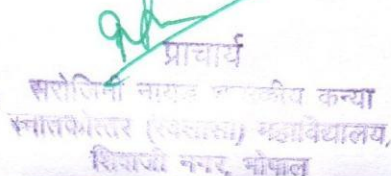 प्राचार्य
सरोजिनी नायडू शासकीय कन्या
स्नातकोत्तर (स्वशासी) महाविद्यालय,
शिवाजी नगर, भोपाल